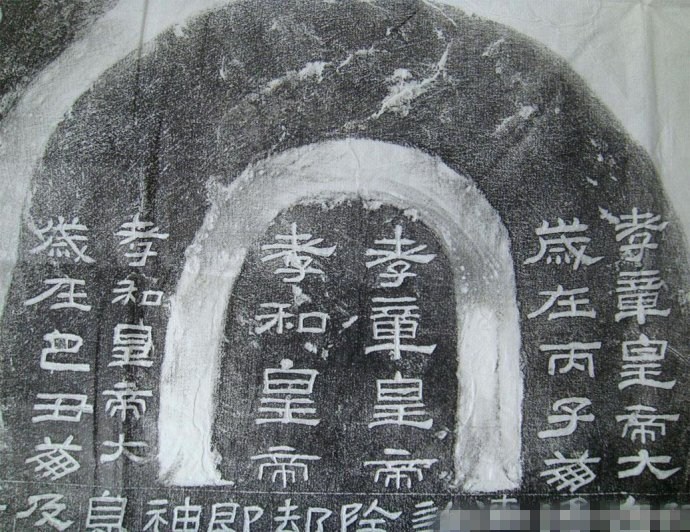 孝章皇帝大
歲在丙子崩
孝章皇帝
孝和皇帝
孝和皇帝大
歲在己丑崩
除却即神息及